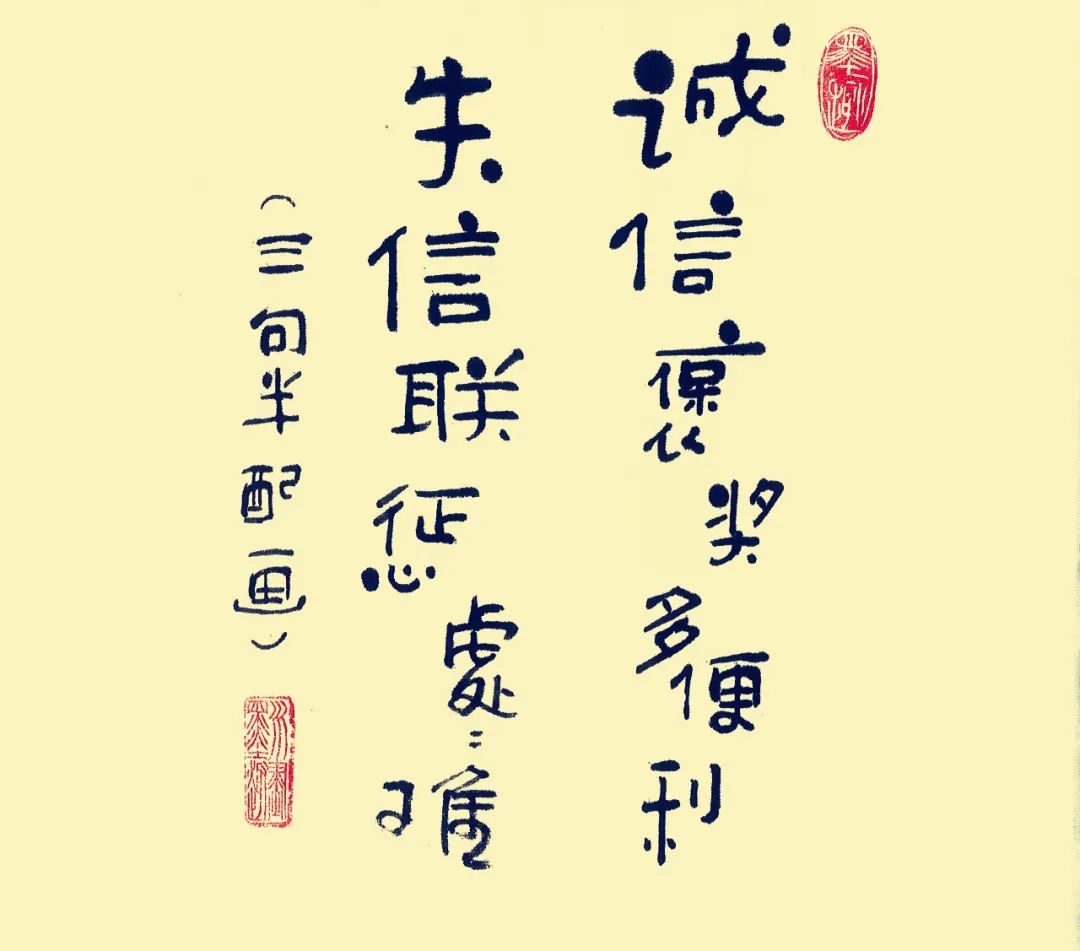 诚信褒奖多便利
失信联惩處〃难
（三句半配画）